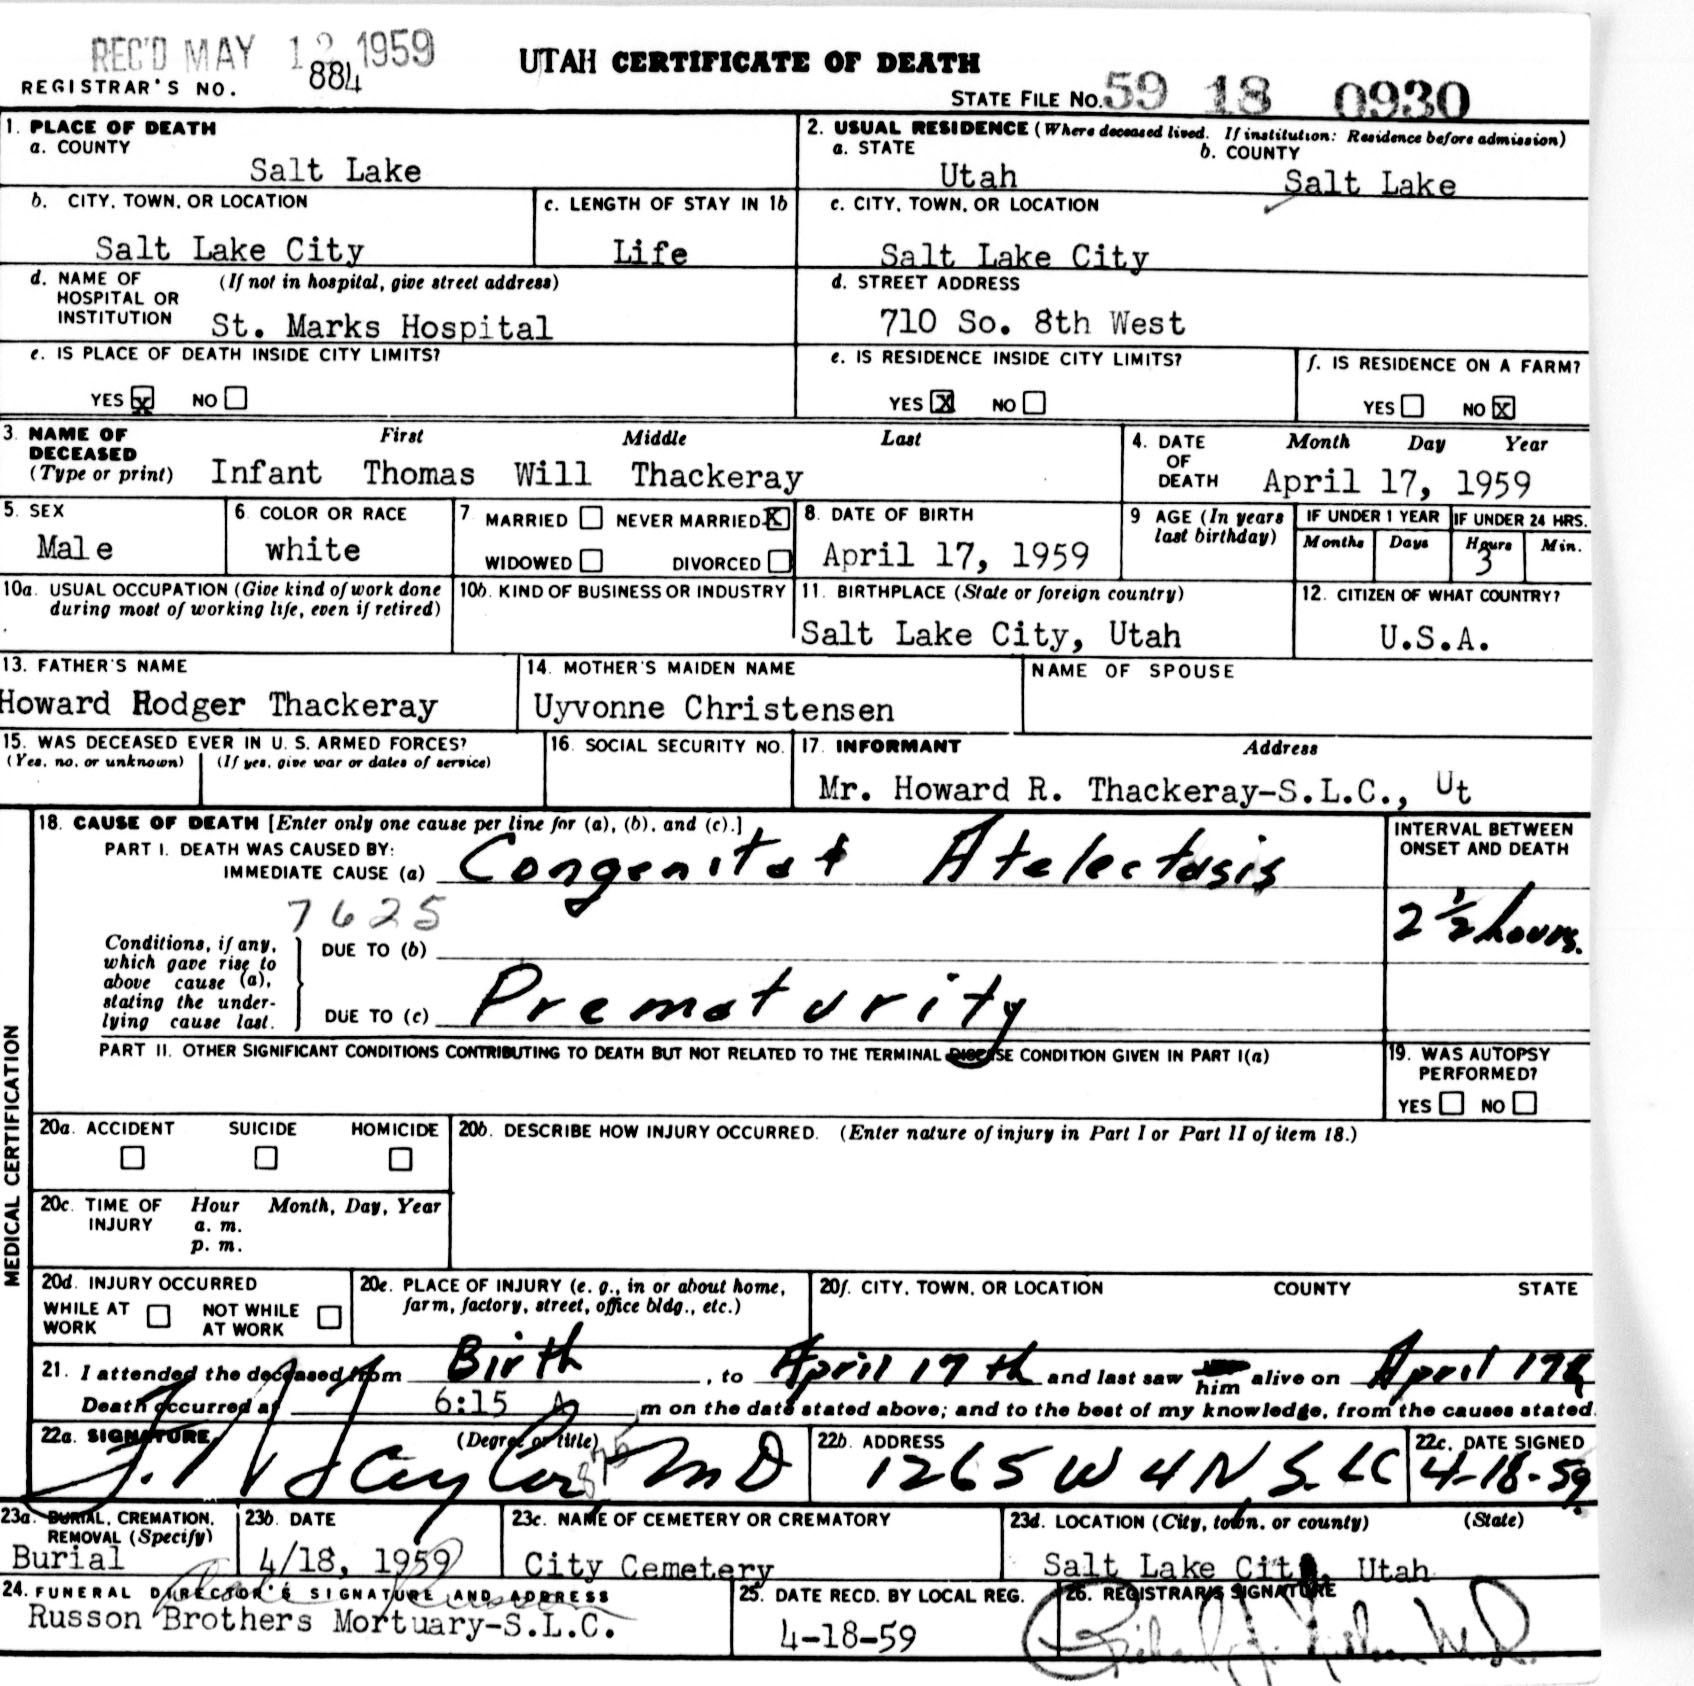 REC'D MAY 12 1959
UTAH CERTIFICATE OF DEATH
REGISTRAR'S NO. 884
STATE FILE NO. 59 18 0930
1. PLACE OF DEATH
a. COUNTY
Salt Lake
2. USUAL RESIDENCE (Where deceased lived. If institution: Residence before admission)
a. STATE b. COUNTY
Utah Salt Lake
b. CITY, TOWN, OR LOCATION
Salt Lake City
c. LENGTH OF STAY IN 1b
Life
c. CITY, TOWN, OR LOCATION
Salt Lake City
d. NAME OF (If not in hospital, give street address)
HOSPITAL OR
INSTITUTION St. Marks Hospital
d. STREET ADDRESS
710 So. 8th West
e. IS PLACE OF DEATH INSIDE CITY LIMITS?
YES X NO
e. IS RESIDENCE INSIDE CITY LIMITS?
YES X NO
f. IS RESIDENCE ON A FARM?
YES NO X
3. NAME OF First Middle Last
DECEASED
(Type or print) Infant Thomas Will Thackeray
4. DATE Month Day Year
OF
DEATH April 17, 1959
5. SEX
Male
6. COLOR OR RACE
white
7 MARRIED NEVER MARRIED X
WIDOWED DIVORCED
8. DATE OF BIRTH
April 17, 1959
9 AGE (In years
last birthday)
IF UNDER 1 YEAR IF UNDER 24 HRS.
Months Days Hours Min.
3
10a. USUAL OCCUPATION (Give kind of work done
during most of working life, even if retired)
10b. KIND OF BUSINESS OR INDUSTRY
11. BIRTHPLACE (State or foreign country)
Salt Lake City, Utah
12. CITIZEN OF WHAT COUNTRY?
U.S.A.
13. FATHER'S NAME
Howard Rodger Thackeray
14. MOTHER'S MAIDEN NAME
Uyvonne Christensen
NAME OF SPOUSE
15. WAS DECEASED EVER IN U. S. ARMED FORCES?
(Yes, no, or unknown) (If yes, give war or dates of service)
16. SOCIAL SECURITY NO.
17. INFORMANT Address
Mr. Howard R. Thackeray-S.L.C., Ut
MEDICAL CERTIFICATION
18. CAUSE OF DEATH [Enter only one cause per line for (a), (b), and (c).]
PART I. DEATH WAS CAUSED BY:
IMMEDIATE CAUSE (a) Congenital Atelectasis
INTERVAL BETWEEN
ONSET AND DEATH
2 1/2 hours.
7625
Conditions, if any,
which gave rise to
above cause (a),
stating the under-
lying cause last.
DUE TO (b)
DUE TO (c) Prematurity
PART II. OTHER SIGNIFICANT CONDITIONS CONTRIBUTING TO DEATH BUT NOT RELATED TO THE TERMINAL DISEASE CONDITION GIVEN IN PART I(a)
19. WAS AUTOPSY
PERFORMED?
YES NO
20a. ACCIDENT SUICIDE HOMICIDE
20b. DESCRIBE HOW INJURY OCCURRED. (Enter nature of injury in Part I or Part II of item 18.)
20c. TIME OF Hour Month, Day, Year
INJURY a. m.
p. m.
20d. INJURY OCCURRED
WHILE AT NOT WHILE
WORK AT WORK
20e. PLACE OF INJURY (e. g., in or about home,
farm, factory, street, office bldg., etc.)
20f. CITY, TOWN, OR LOCATION COUNTY STATE
21. I attended the deceased from Birth, to April 17th and last saw him alive on April 17th
Death occurred at 6:15 A m on the date stated above; and to the best of my knowledge, from the causes stated.
22a. SIGNATURE (Degree or title)
MD
22b. ADDRESS
1265 W 4 N, S. LC
22c. DATE SIGNED
4-18-59
23a. BURIAL, CREMATION,
REMOVAL (Specify)
Burial
23b. DATE
4/18, 1959
23c. NAME OF CEMETERY OR CREMATORY
City Cemetery
23d. LOCATION (City, town, or county) (State)
Salt Lake City, Utah
24. FUNERAL DIRECTOR'S SIGNATURE AND ADDRESS
Russon Brothers Mortuary-S.L.C.
25. DATE RECD. BY LOCAL REG.
4-18-59
26. REGISTRAR'S SIGNATURE